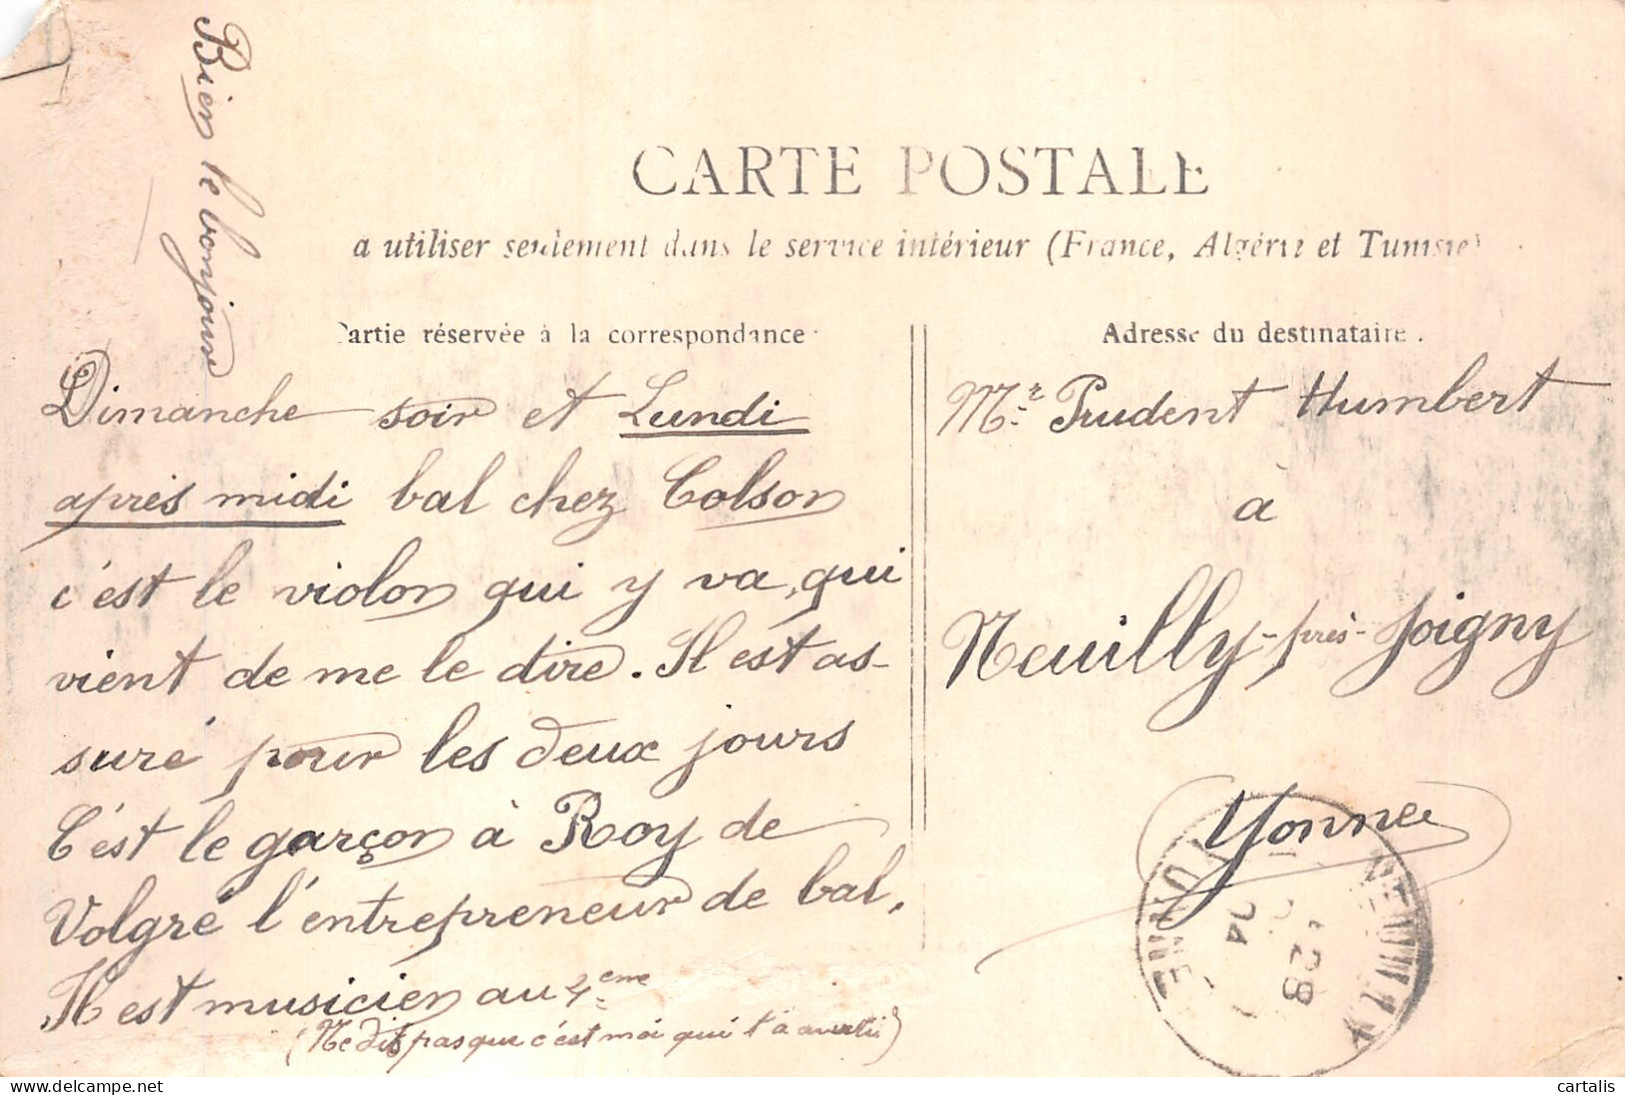 Bien le bonjour
CARTE POSTALE
à utiliser seulement dans le service intérieur (France, Algérie et Tunisie)
Partie réservée à la correspondance
Adresse du destinataire.
Dimanche soir et Lundi
après midi bal chez Colson
c'est le violon qui y va, qui
vient de me le dire. Il est as-
suré pour les deux jours
C'est le garçon à Roy de
Volgré l'entrepreneur de bal,
Il est musicien au 4eme
(Ne dis pas que c'est moi qui t'a averti)
Mr Prudent Humbert
à
Neuilly-près-Joigny
Yonne
28
www.delcampe.net
cartalis